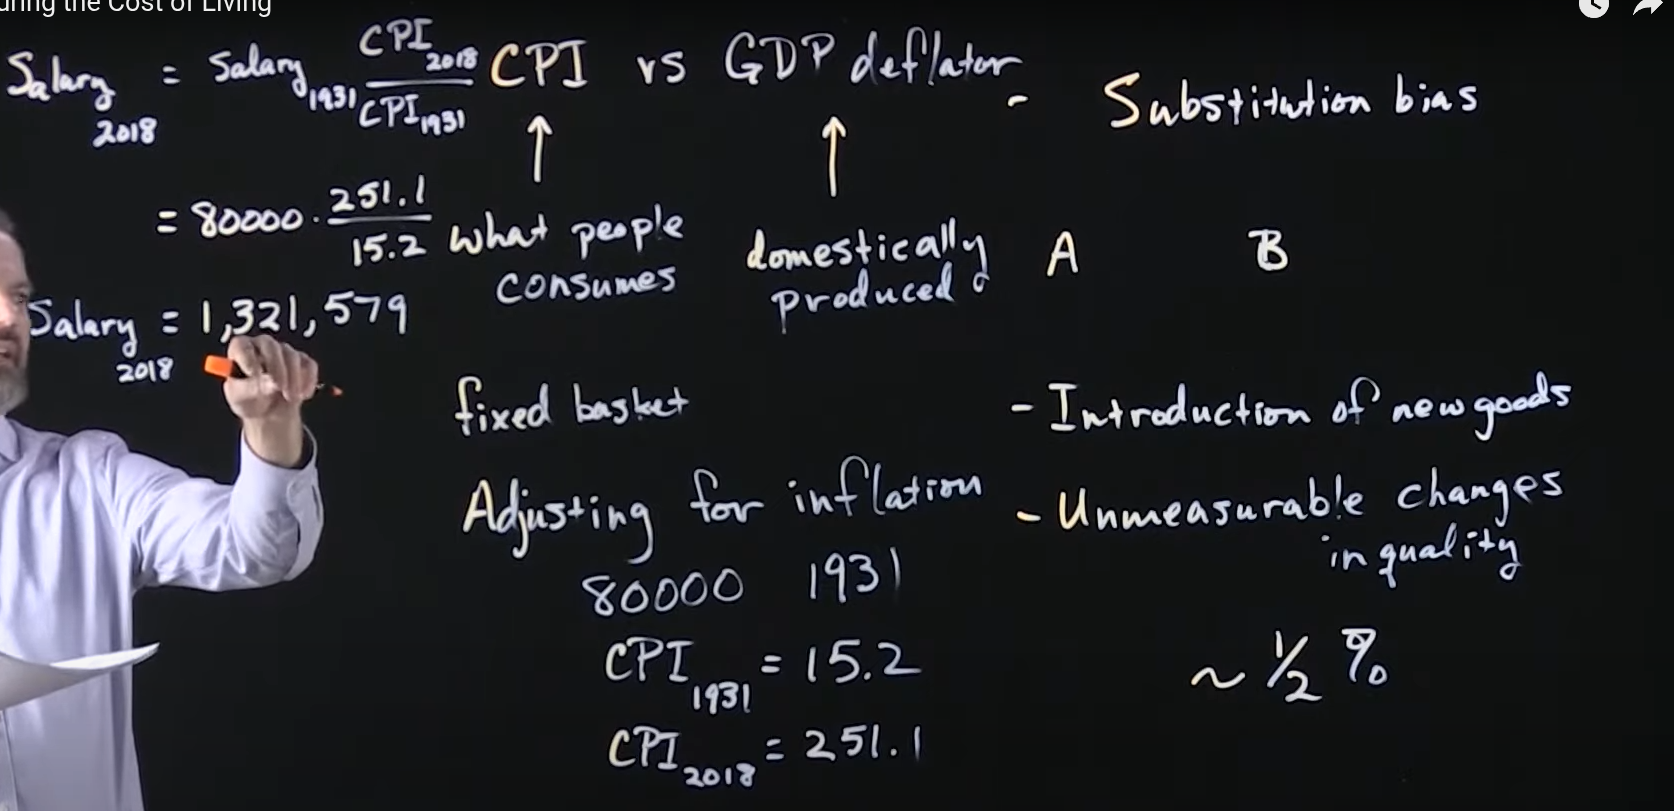 uring the Cost of Living
Salary 2018 = Salary 1931 CPI 2018 / CPI 1931
= 80000 · 251.1 / 15.2
Salary 2018 = 1,321,579
CPI vs GDP deflator
↑ ↑
what people consumes
domestically produced
fixed basket
Adjusting for inflation
80000 1931
CPI 1931 = 15.2
CPI 2018 = 251.1
- Substitution bias
A B
- Introduction of new goods
- Unmeasurable changes
in quality
~ 1/2 %